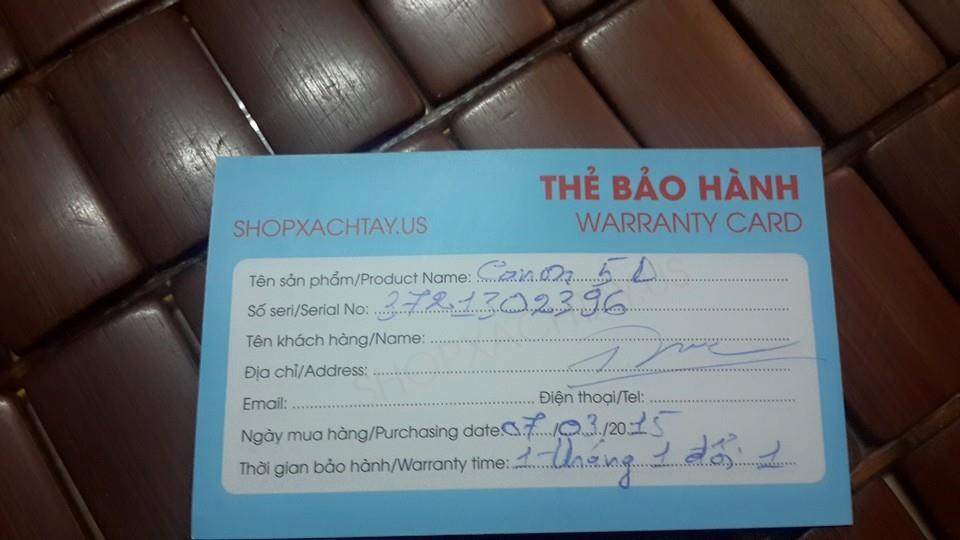 THẺ BẢO HÀNH
SHOPXACHTAY.US WARRANTY CARD
Tên sản phẩm/Product Name: Canon 5 D
Số seri/Serial No: 3721302396
Tên khách hàng/Name:
Địa chỉ/Address:
Email: Điện thoại/Tel:
Ngày mua hàng/Purchasing date: 07/03/2015
Thời gian bảo hành/Warranty time: 1 tháng 1 đổi 1